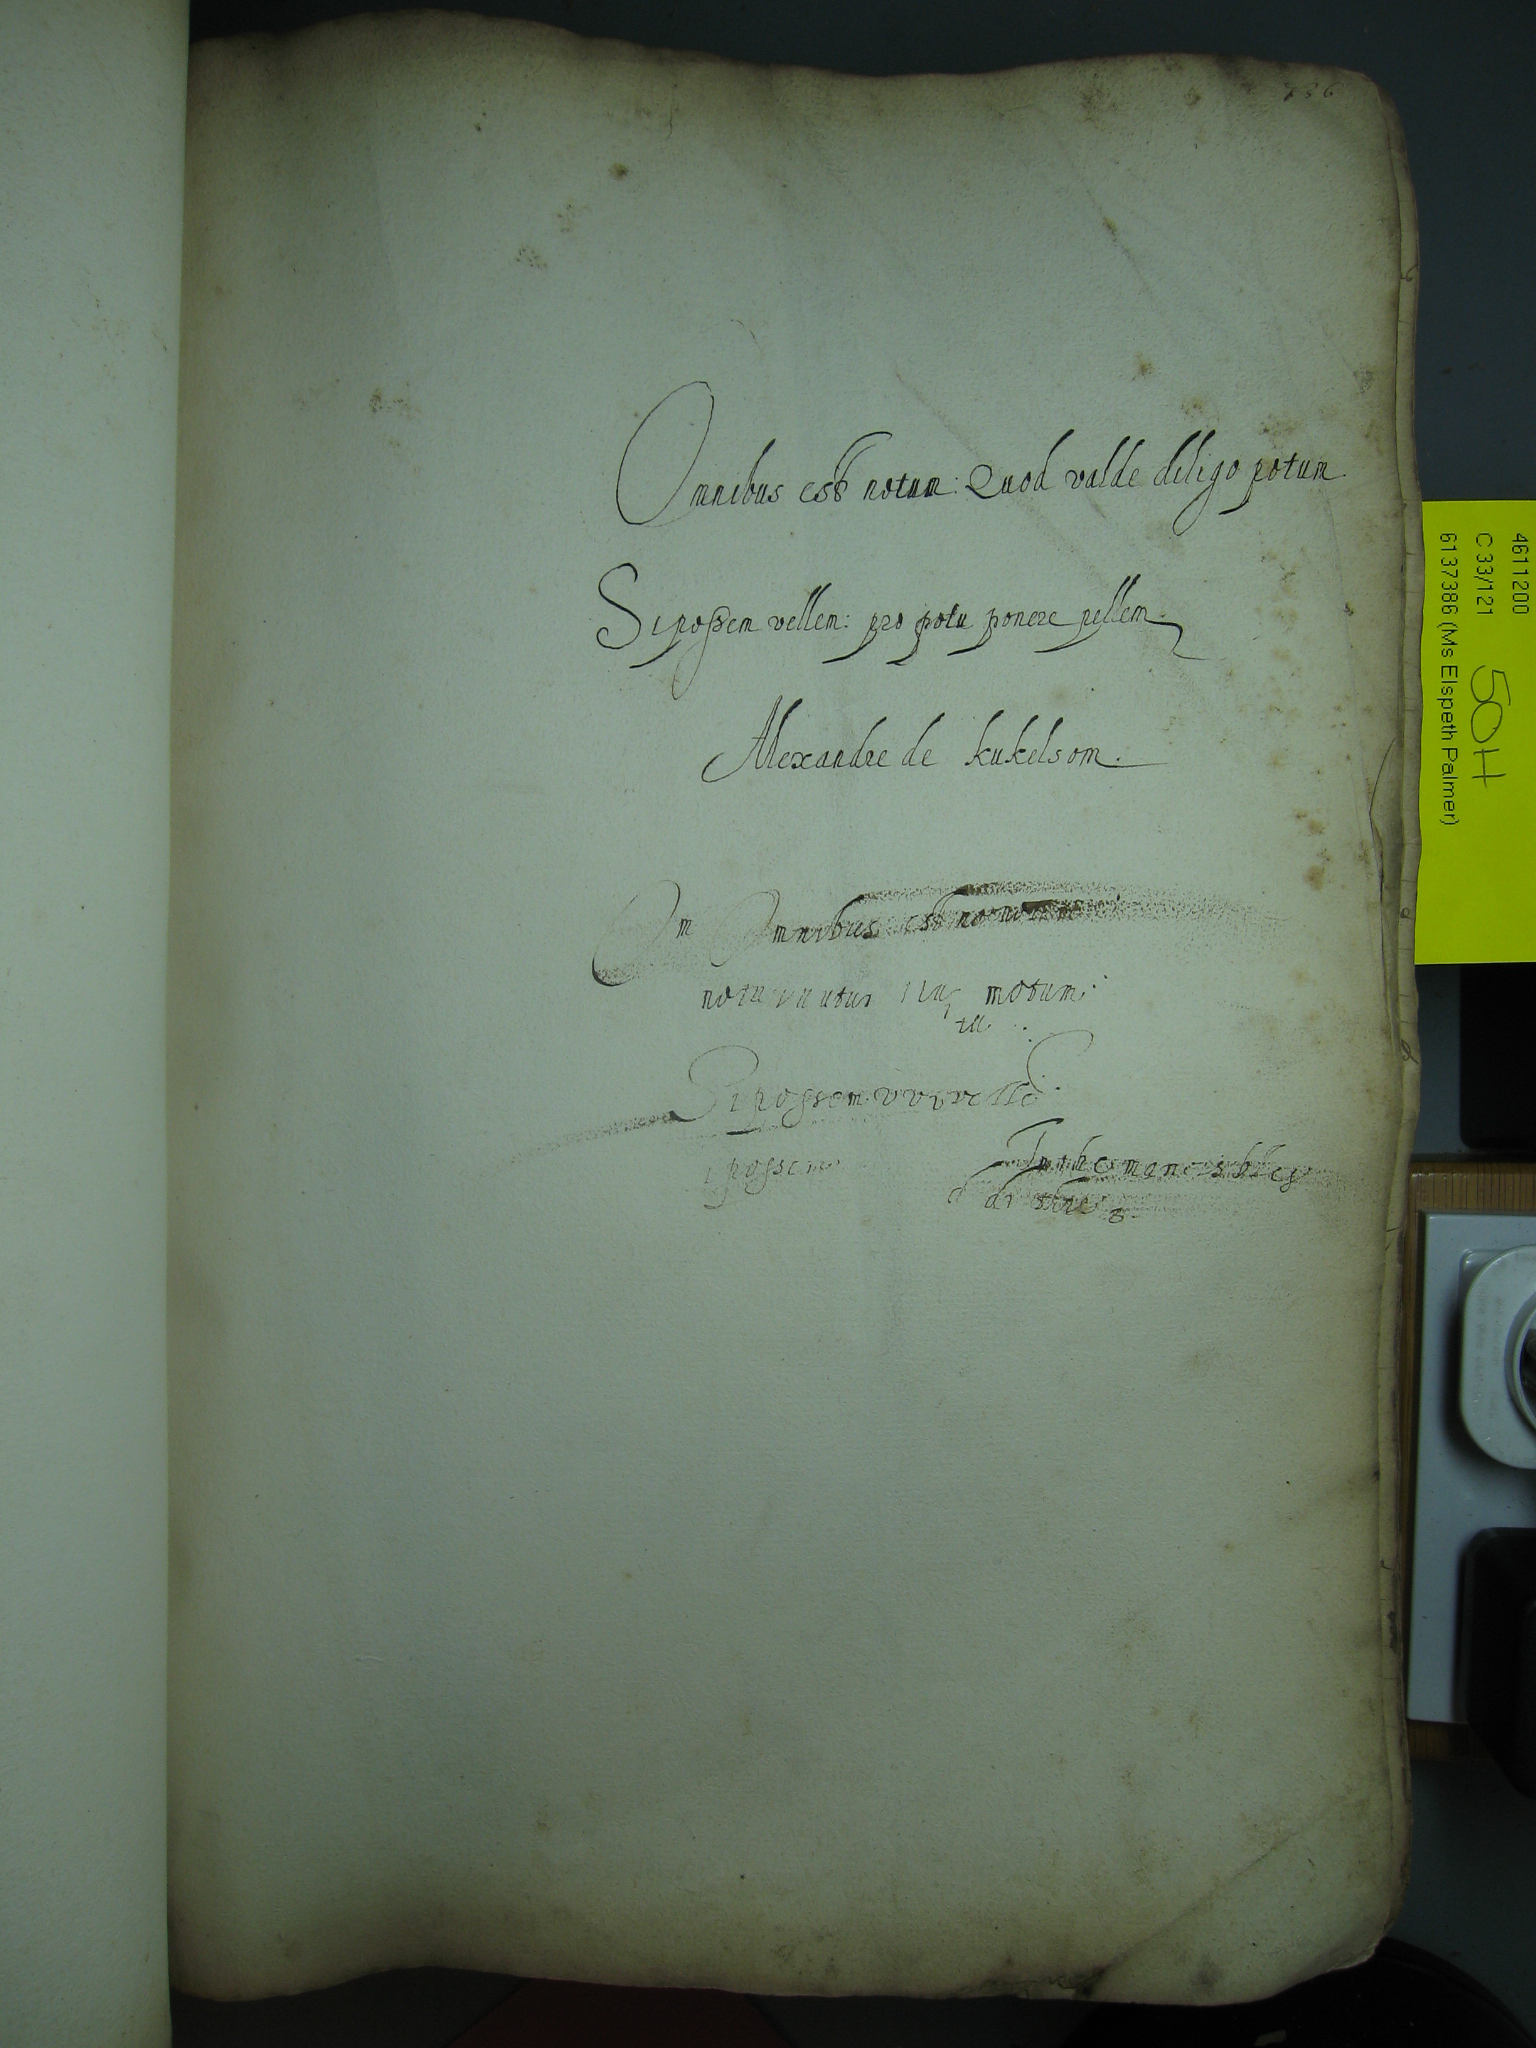 736
Omnibus est notum: Quod valde diligo potum
Si possem vellem: pro potu ponere pellem
Alexandre de kukelsom.
Om Omnibus est no notum
motum
Si possem
possem
4611200
C 33/121 50H
6137386 (Ms Elspeth Palmer)